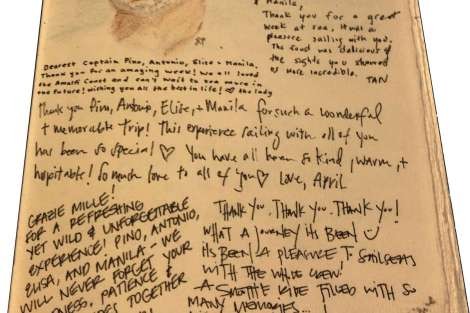 Manila,
Thank you for a great
week at sea, it was a
pleasure sailing with you.
The food was delicious &
the sights you showed
us more incredible.
TAN
Dearest Captain Pino, Antonio, Elise + Manila,
Thank you for an amazing week! We all loved
the Amalfi Coast and can't wait to see more in
the future! wishing you all the best in life! ♡ the lady
Thank you Pino, Antonio, Elise, + Manila for such a wonderful
+ memorable trip! This experience sailing with all of you
has been so special ♡ You have all been so kind, warm, +
hospitable! So much love to all of you ♡ Love, April
GRAZIE MILLE!
FOR A REFRESHING
YET WILD & UNFORGETTABLE
EXPERIENCE! PINO, ANTONIO,
ELISA, AND MANILA - WE
WILL NEVER FORGET YOUR
PATIENCE &
TOGETHER
THANK YOU. THANK YOU. THANK YOU!
WHAT A JOURNEY ITS BEEN
ITS BEEN A PLEASURE TO
WITH THE WHOLE CREW!
A RIDE FILLED WITH SO
MANY MEMORIES...!